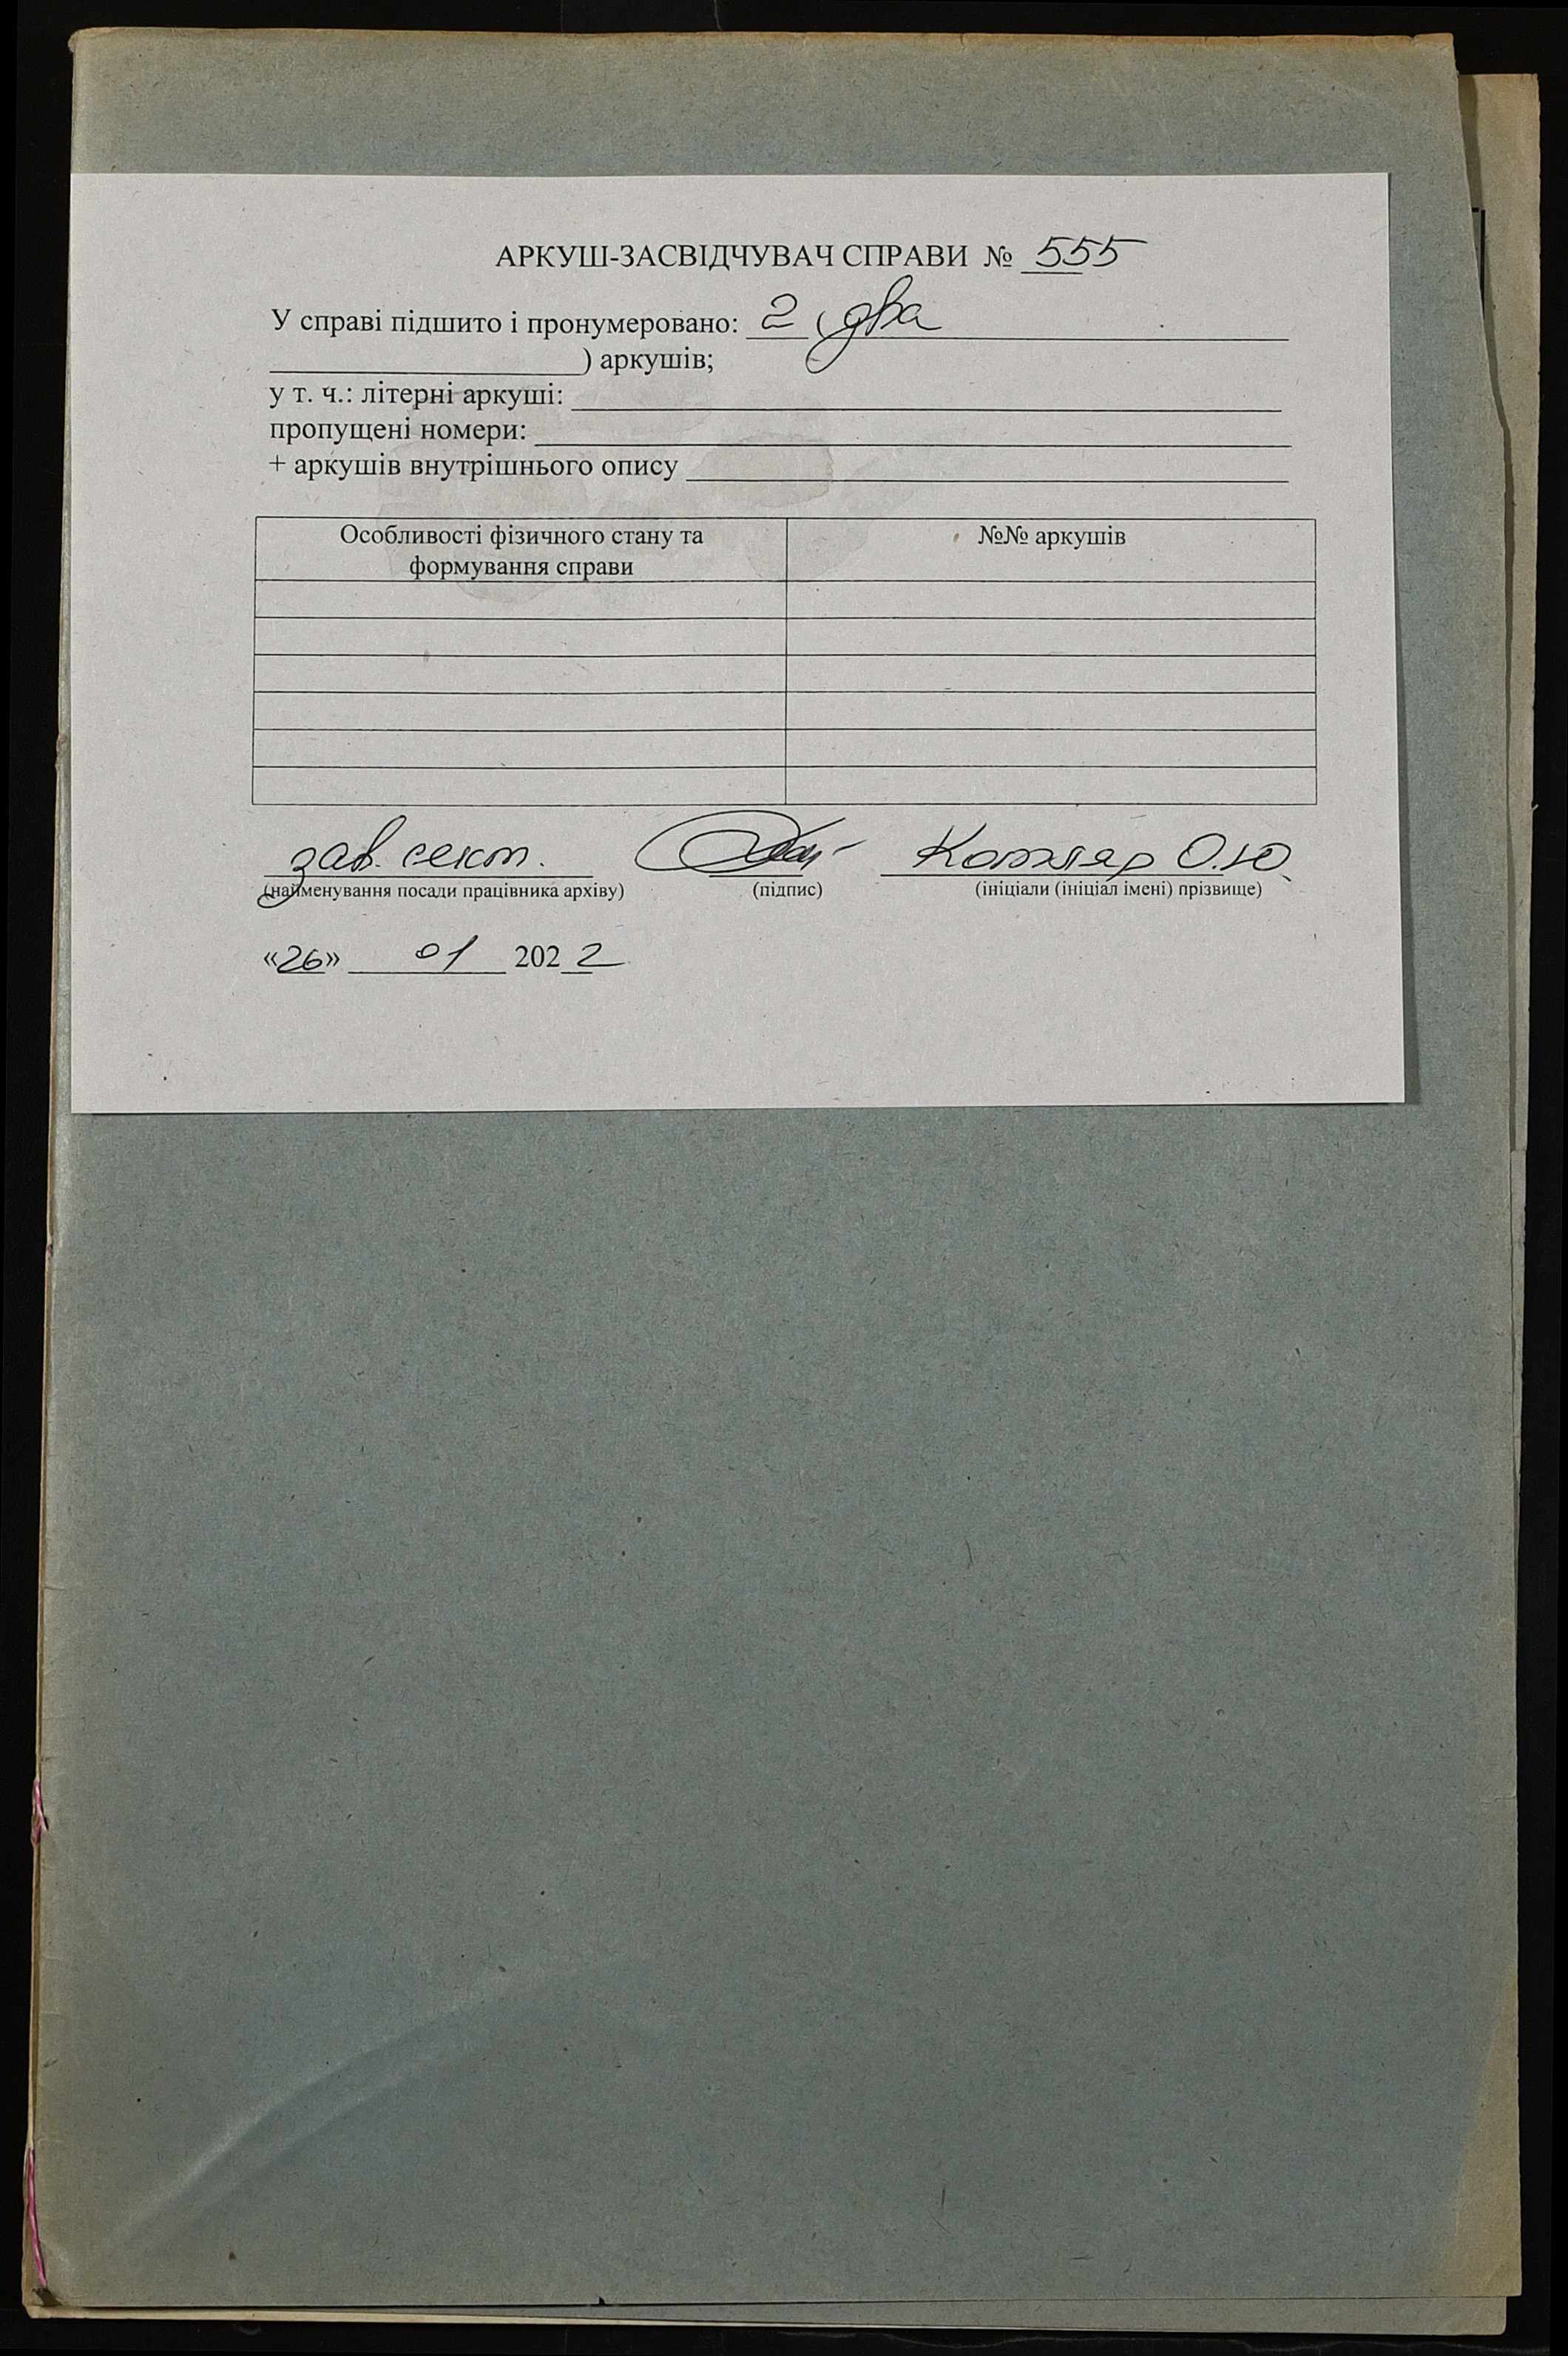 АРКУШ-ЗАСВІДЧУВАЧ СПРАВИ № 555
У справі підшито і пронумеровано: 2 (два
) аркушів;
у т. ч.: літерні аркуші:
пропущені номери:
+ аркушів внутрішнього опису
Особливості фізичного стану та
формування справи
№№ аркушів
зав. сект. Котляр О.Ю.
(найменування посади працівника архіву) (підпис) (ініціали (ініціал імені) прізвище)
«26» 01 2022